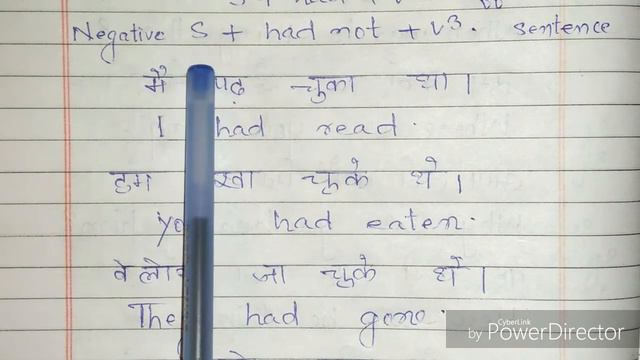 Negative S + had not + V³. sentence
मै पढ़ चुका था।
I had read.
हम खा चूके थे।
had eaten.
जा चूके थे।
had gone.
CyberLink
by PowerDirector